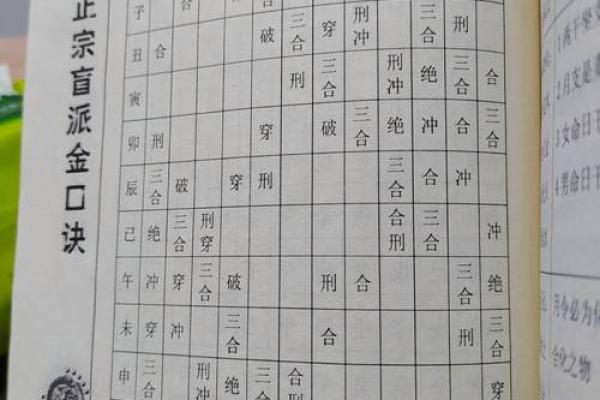 正宗盲派金口诀
子 合 三合 刑
丑 合 破 三合 穿 刑冲 三合 刑
寅 刑 三合 刑冲 绝 三合 合
卯 刑 穿 破 三合 绝 冲 合 三合
辰 三合 破 穿 刑 三合 合 冲
巳 绝 三合 刑穿 合刑 三合 冲
午 冲 穿 三合 破 刑 合 三合 绝
未 穿 冲 三合 合 刑 三合
申 三合 刑冲 绝 三合 合刑 穿
2月支是
3女命日干
4男命日干
合化之物